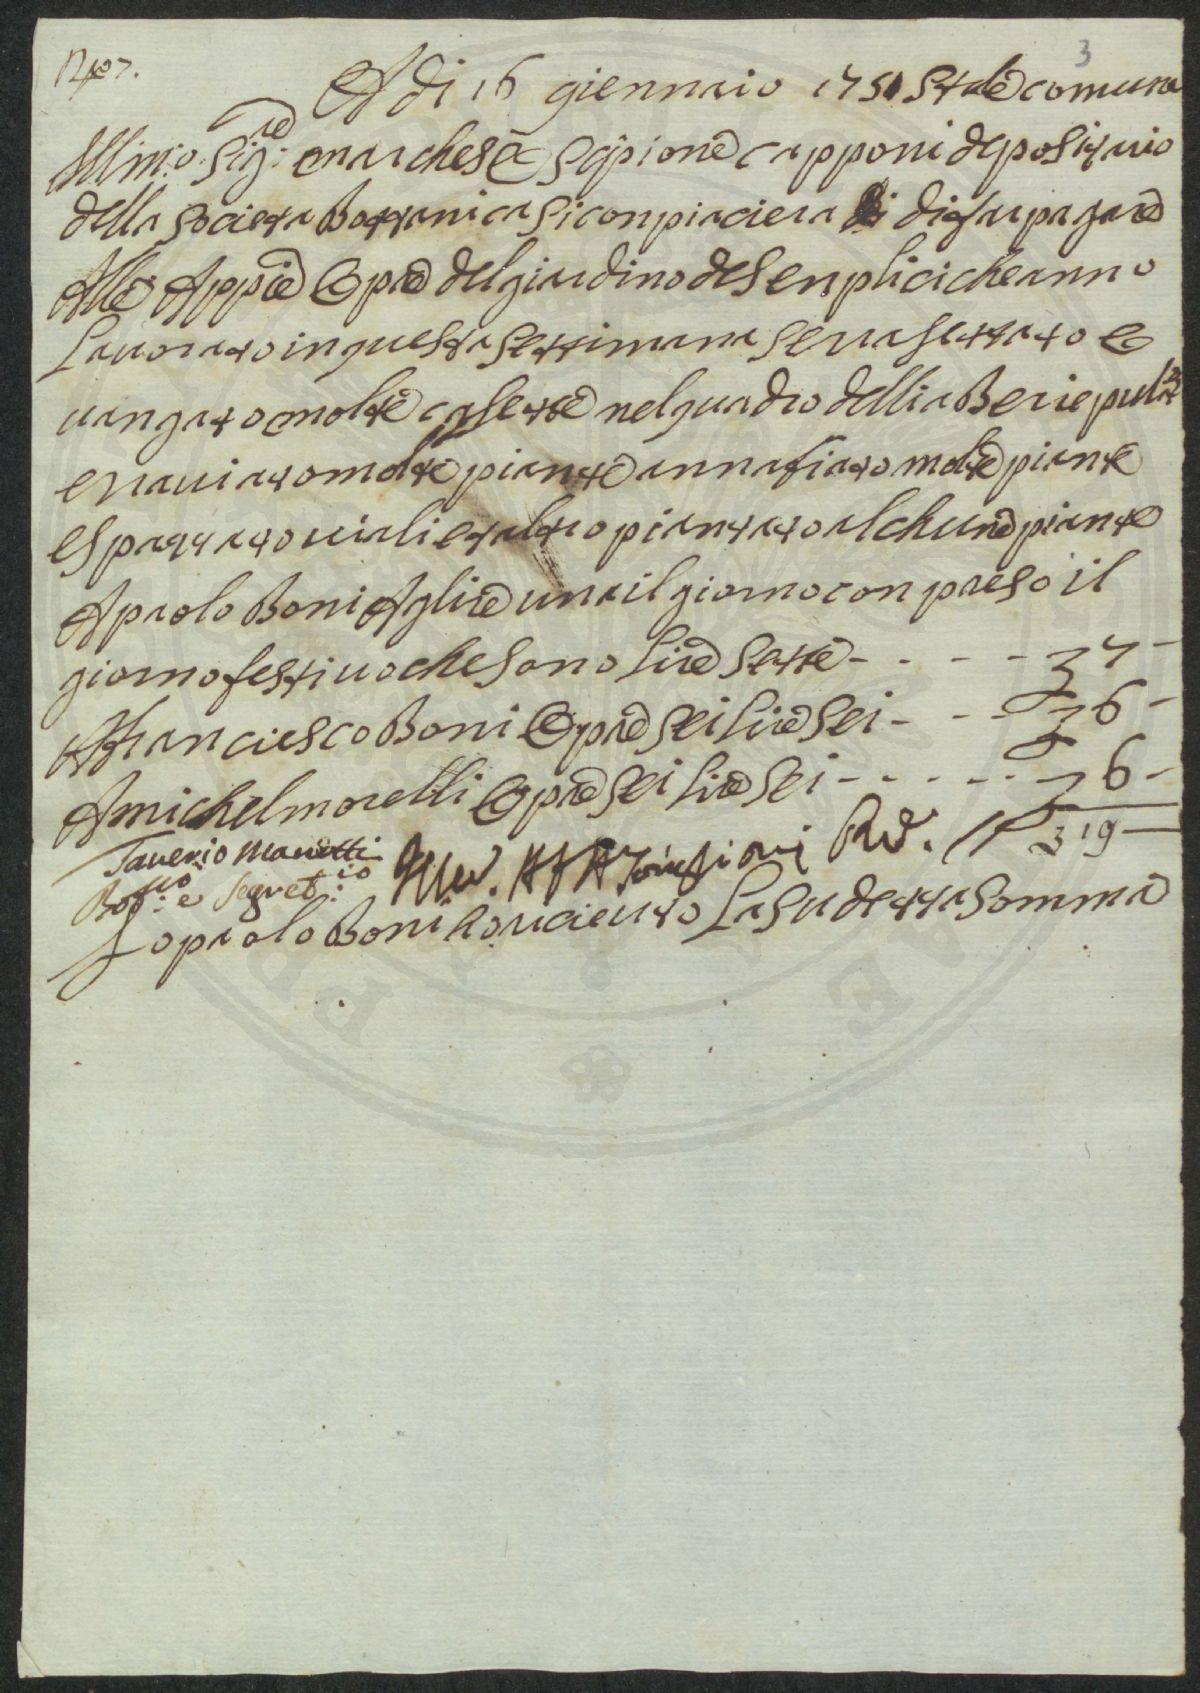 N° 7.
3
A di 16 giennaio 1751 Stile comune
Illm:o Sig:re marchese Scipione capponi depositario
della Societa Bottanica si conpiaciera di far pagare
Alle Appie Opre del giardino de Senplici che anno
Lauorato in questa settimana se ua setattato e
uangato molte casette nel quadro delli aBerie
e rauiato molte piante annafiato molte piante
e spaзzato uiali et altro piantato alchune piante
A paolo Boni A lire una il giorno con preso il
giorno festiuo che sono lire sette - - - - - 7 -
A Franciesco Boni Opre sei lire sei - - - 6 -
A michel moretti Opre sei lire sei - - - - - - 6 -
Sauerio Manetti
Bot:co e Segret:io
19 -
Io paolo Boni o riceuto La su detta Somma